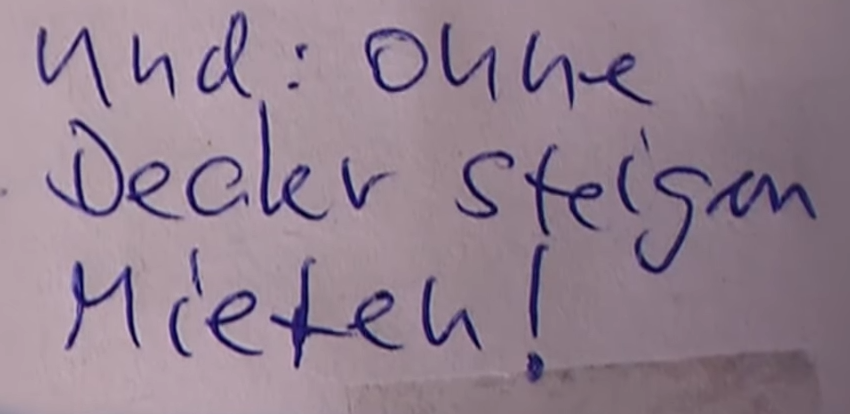 Und: Ohne
Dealer steigen
Mieten!